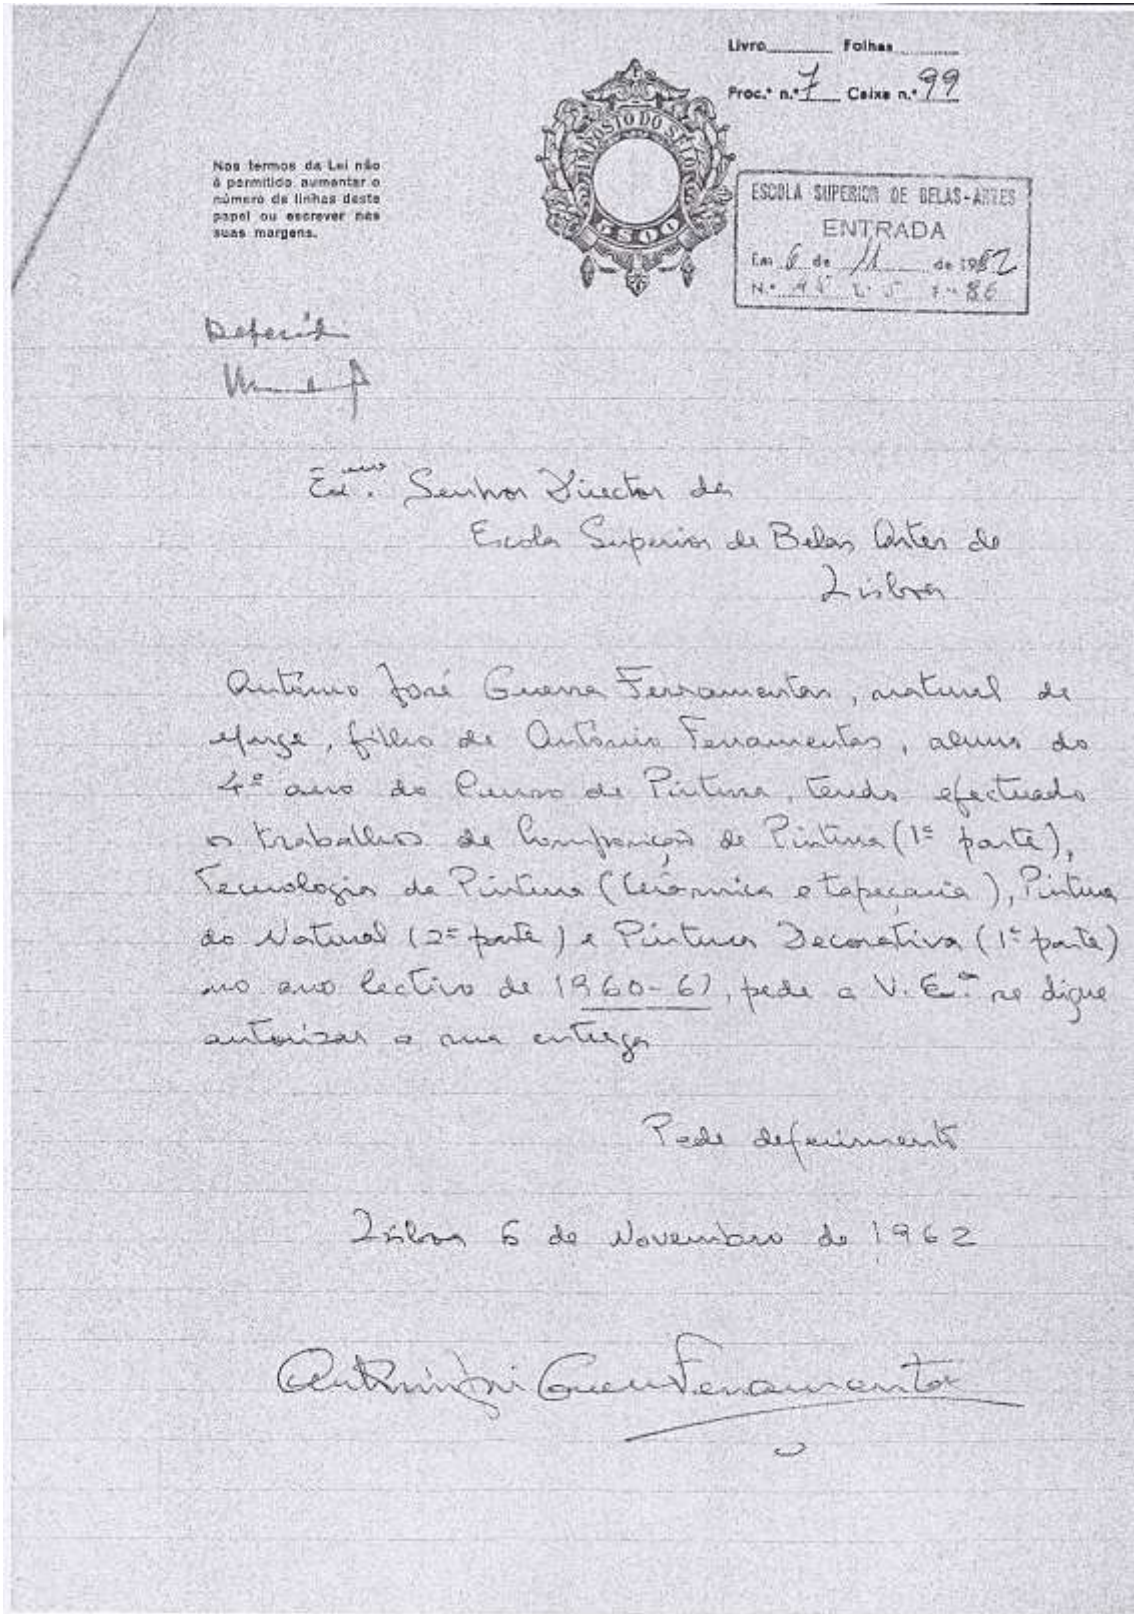 Livro Folhas
Proc.º n.º 7 Caixa n.º 99
Nos termos da Lei não
é permitido aumentar o
número de linhas deste
papel ou escrever nas
suas margens.
IMPOSTO DO SELO
5$00
ESCOLA SUPERIOR DE BELAS-ARTES
ENTRADA
Em 6 de 11 de 1962
N.º 95 L.º 5 F.as 86
Deferido
Ex.mo Senhor Director da
Escola Superior de Belas Artes de
Lisboa
António José Guerra Ferramentas, natural de
filho de António Ferramentas, aluno do
4º ano do Curso de Pintura, tendo efectuado
os trabalhos de Composição de Pintura (1ª parte),
Tecnologia da Pintura (Cerâmica e tapeçaria), Pintura
do Natural (2ª parte) e Pintura Decorativa (1ª parte)
no ano lectivo de 1960-61, pede a V. Ex.ª se digne
autorizar a sua entrega
Pede deferimento
Lisboa 6 de Novembro de 1962
António José Guerra Ferramentas